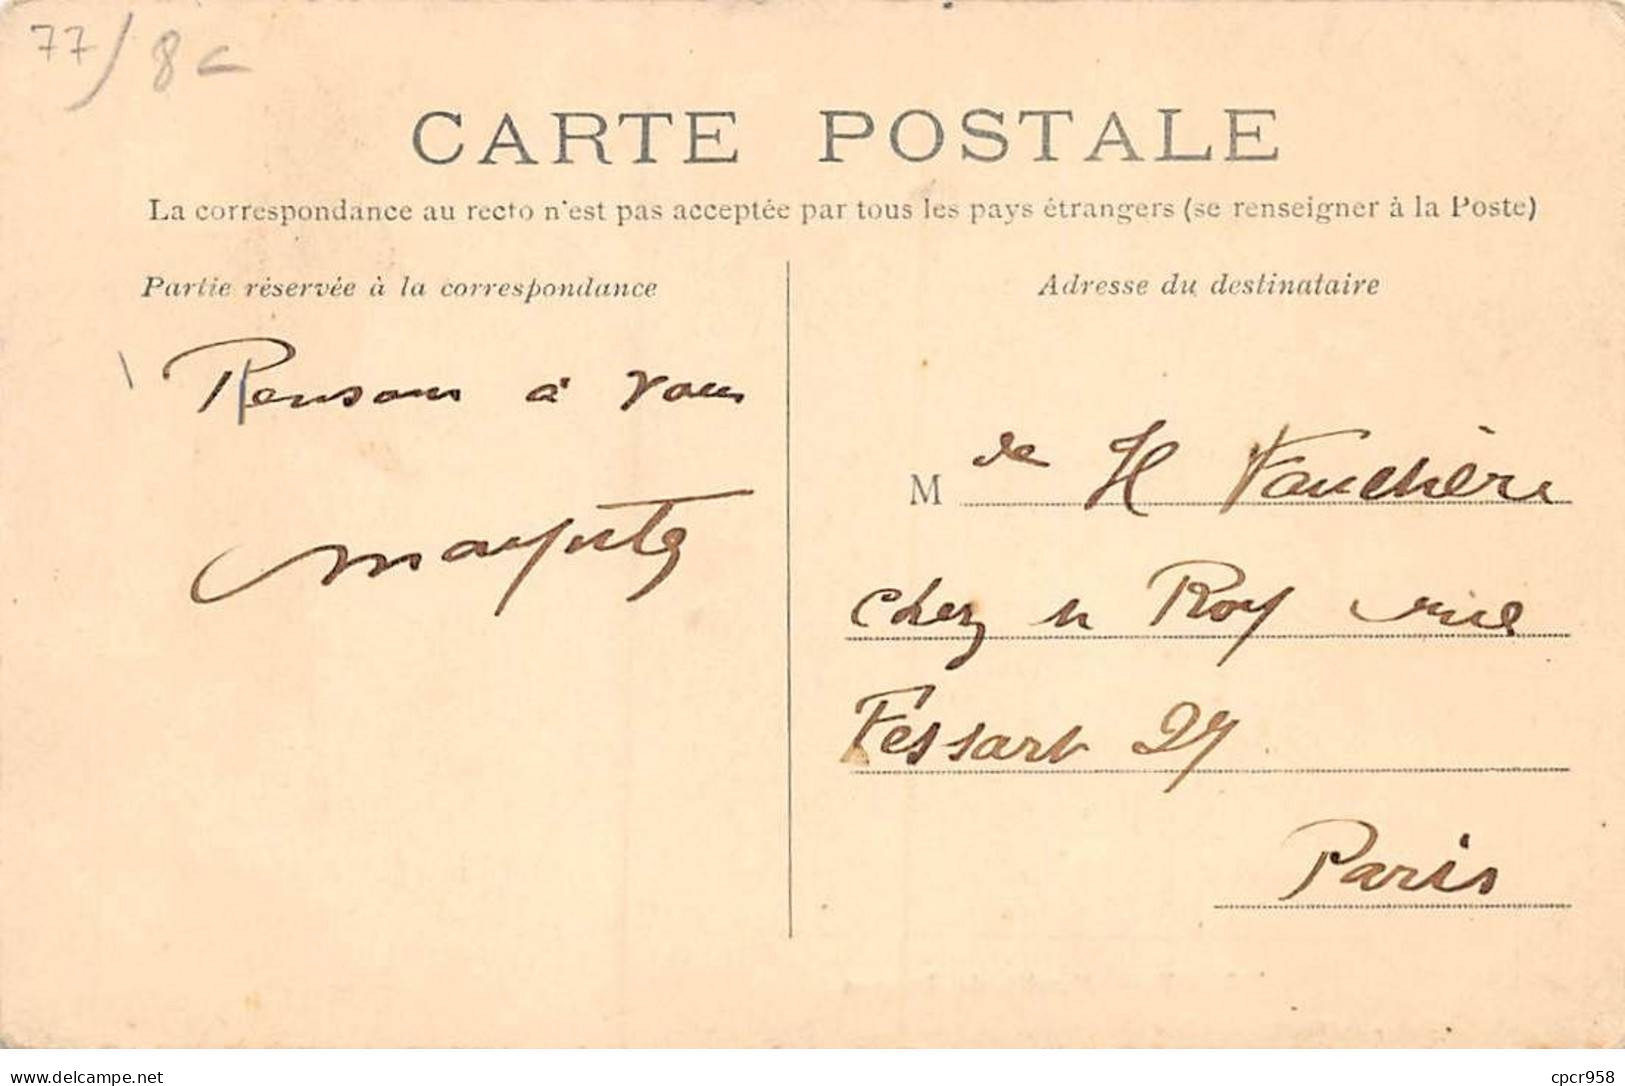 77/8c
CARTE POSTALE
La correspondance au recto n'est pas acceptée par tous les pays étrangers (se renseigner à la Poste)
Partie réservée à la correspondance
Adresse du destinataire
Pensons à vous
Mde H Fauchère
chez Roy rue
Fessart 27
Paris
delcampe.net
cpcr958